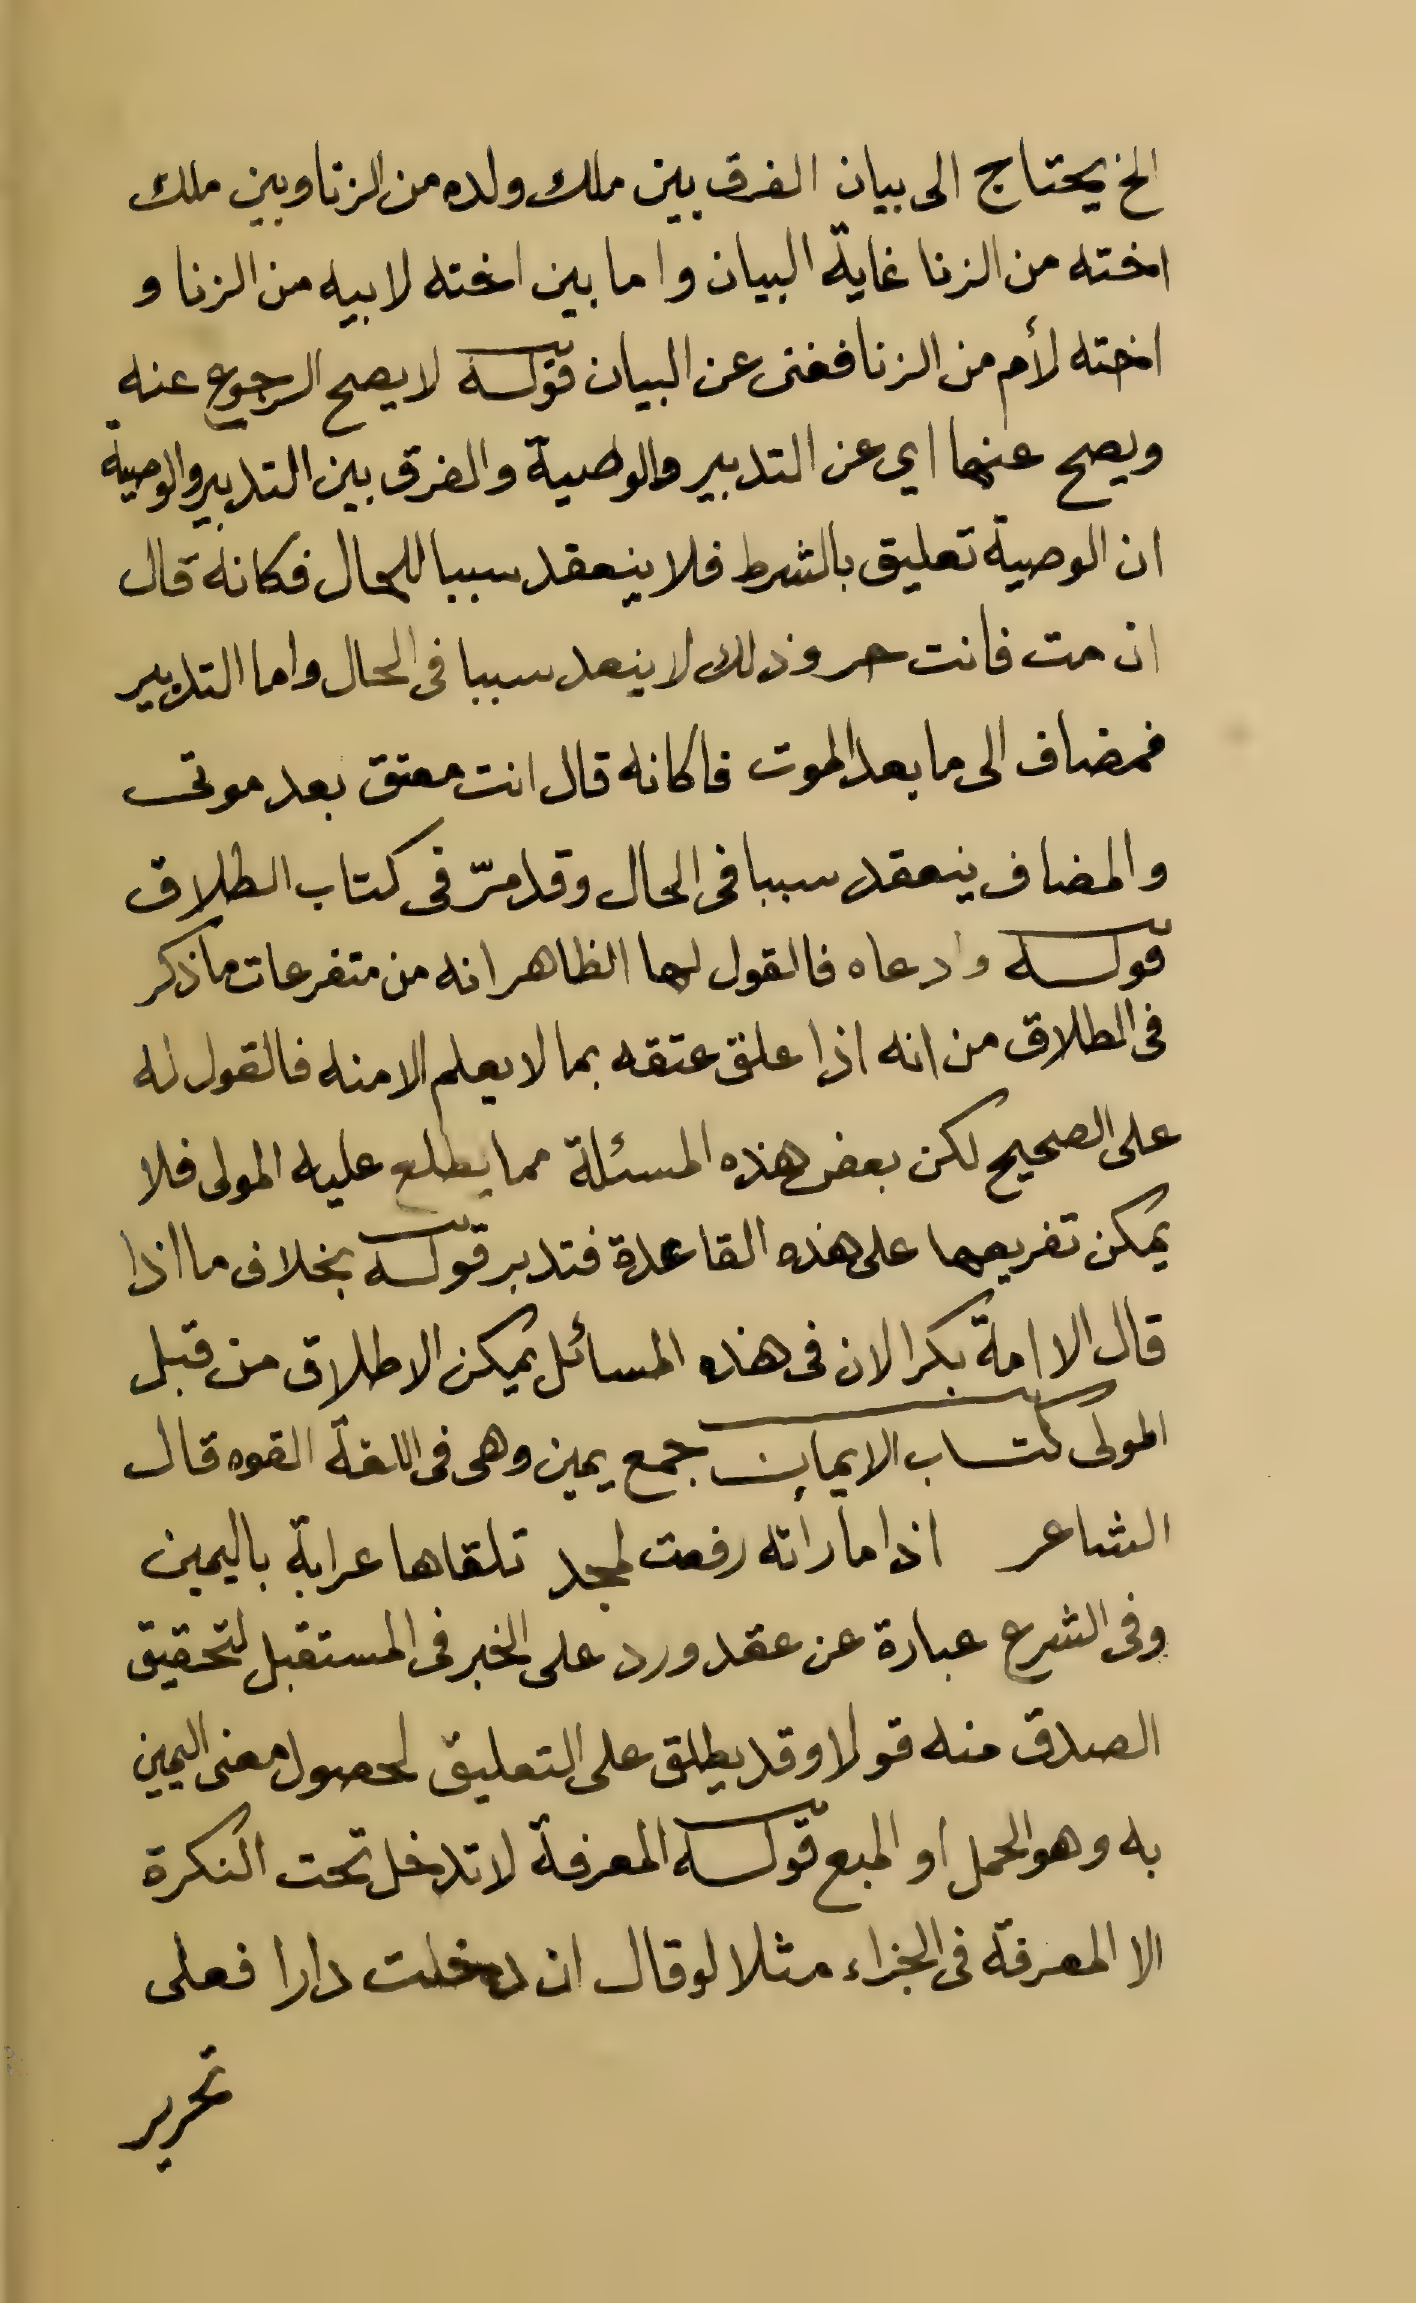 الخ يحتاج الى بيان الفرق بين ملك ولده من الزنا وبين ملك
اخته من الزنا غاية البيان واما بين اخته لابيه من الزنا و
اخته لأم من الزنا فغنى عن البيان قوله لا يصح الرجوع عنه
ويصح عنها اي عن التدبير والوصية والفرق بين التدبير والوصية
ان الوصية تعليق بالشرط فلا ينعقد سببا للحال فكانه قال
ان مت فانت حر وذلك لا ينعد سببا فى الحال واما التدبير
فمضاف الى ما بعد الموت فاكانه قال انت معتق بعد موتى
والمضاف ينعقد سببا فى الحال وقد مرّ فى كتاب الطلاق
قوله وادعاه فالقول لها الظاهر انه من متفرعات ما ذكر
فى الطلاق من انه اذا علق عتقه بما لا يعلم الا منه فالقول له
على الصحيح لكن بعض هذه المسئلة مما يطلع عليه المولى فلا
يمكن تفريعها على هذه القاعدة فتدبر قوله بخلاف ما اذا
قال الا امة بكرا لان فى هذه المسائل يمكن الاطلاق من قبل
المولى كتاب الايمان جمع يمين وهى فى اللغة القوه قال
الشاعر اذا ما راته رفعت لمجد تلقاها عرابة باليمين
وفى الشرع عبارة عن عقد ورد على الخبر فى المستقبل لتحقيق
الصدق منه قولا وقد يطلق على التعليق لحصول معنى اليمين
به وهو الحمل او المبع قوله المعرفة لا تدخل تحت النكرة
الا المعرفة فى الجزاء مثلا لو قال ان دخلت دارا فعلى
تحرير